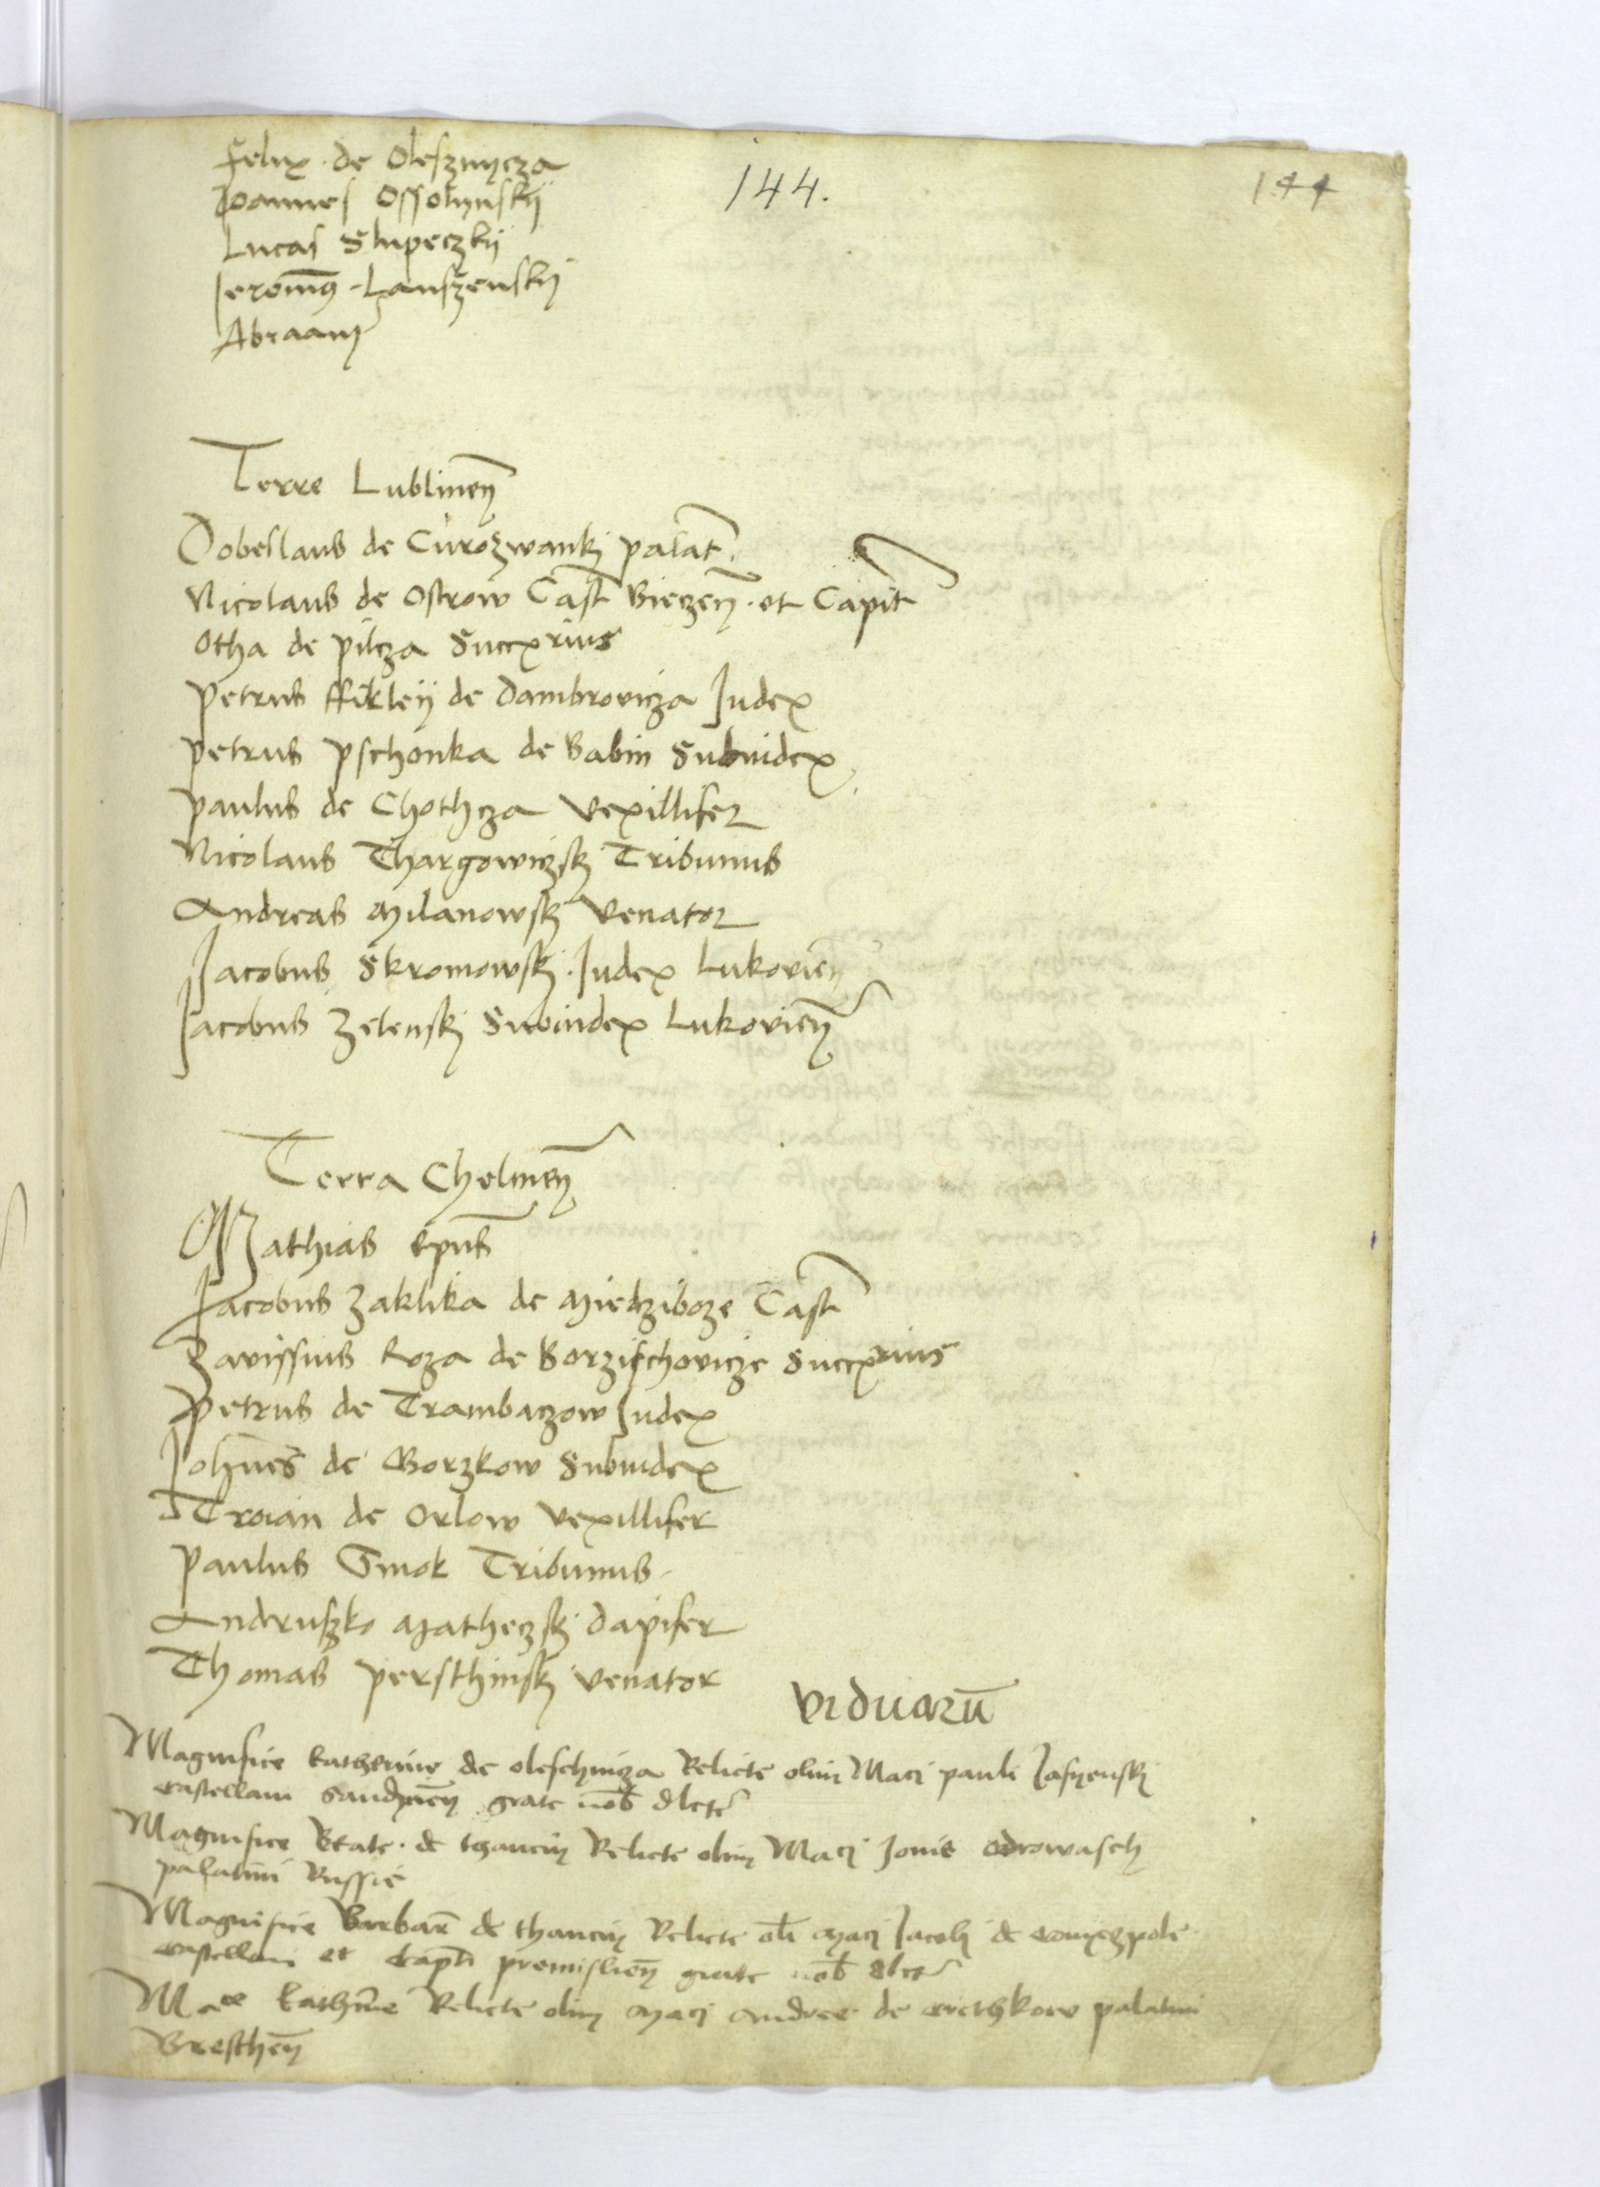 144.
144
Felix de Olesznycza
Joannes Ossolynskij
Lucas Slupeczkij
Jeronimus Lanszenskij
Abraam
Terre Lublinen
Dobeslaus de Curozwanki palat.
Nicolaus de Ostrow Cast Wiczen. et Capit
Otha de pilcza Succxrius
Petrus ffirley de Dambrovicza Judex
petrus pschonka de Babin Subiudex
paulus de Chothcza vexillifer
Nicolaus Thargowiczsky Tribunus
Andreas Milanowsky Venator
Jacobus Skromowsky Judex Lukovien
Jacobus Zelensky Subiudex Lukovien
Terra Chelmen
Mathias Epus
Jacobus Zaklika de Miedziboze Cast
Zavissius Roza de Borzischovicze Succxrius
Petrus de Trambaczow Judex
Johnes de Gorzkow Subiudex
Troian de Orlow vexillifer
Paulus Smok Tribunus
Andruszko Matheczsky Dapifer
Thomas persthinsky Venator
viduarū
Magnifice Katherine de oleschnicza Relicte olim Maci pauli Jasyensky
castellani Sandomirien grate nob dlcte
Magnifice Beate de thancin Relicte olim Maci Jonis odrowasch
palatini Russie
Magnifice Barbare de thancin Relicte oli Maci Jacobi de conyeczpole
castellani et capti premislien grate nob dlcte
Mace Kathrine Relicte olim Maci Andree de palatini
Bresthen